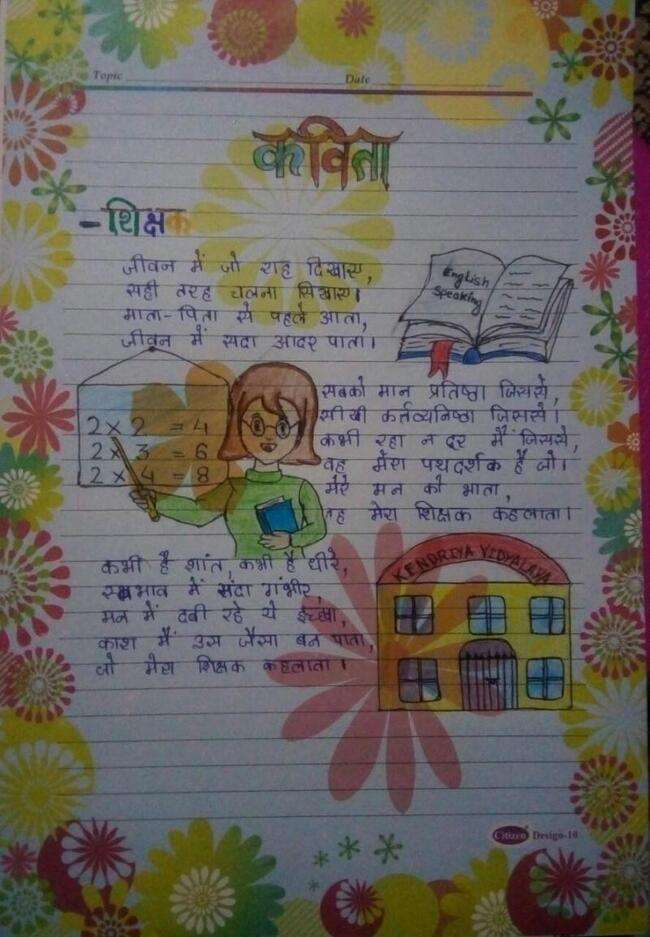 Topic Date
कविता
- शिक्षक
जीवन में जो राह दिखाए,
सही तरह चलना सिखाए।
माता-पिता से पहले आता,
जीवन में सदा आदर पाता।
English
Speaking
सबको मान प्रतिष्ठा जिससे,
सीखी कर्तव्यनिष्ठा जिससे।
कभी रहा न दूर मैं जिससे,
वह मेरा पथदर्शक है जो।
मेरे मन को भाता,
वह मेरा शिक्षक कहलाता।
2 x 2 = 4
2 x 3 = 6
2 x 4 = 8
कभी है शांत, कभी है धीरे,
स्वभाव में सदा गंभीर,
मन में दबी रहे ये इच्छा,
काश मैं उस जैसा बन पाता,
जो मेरा शिक्षक कहलाता।
KENDRIYA VIDYALAYA
Citizen Design-10